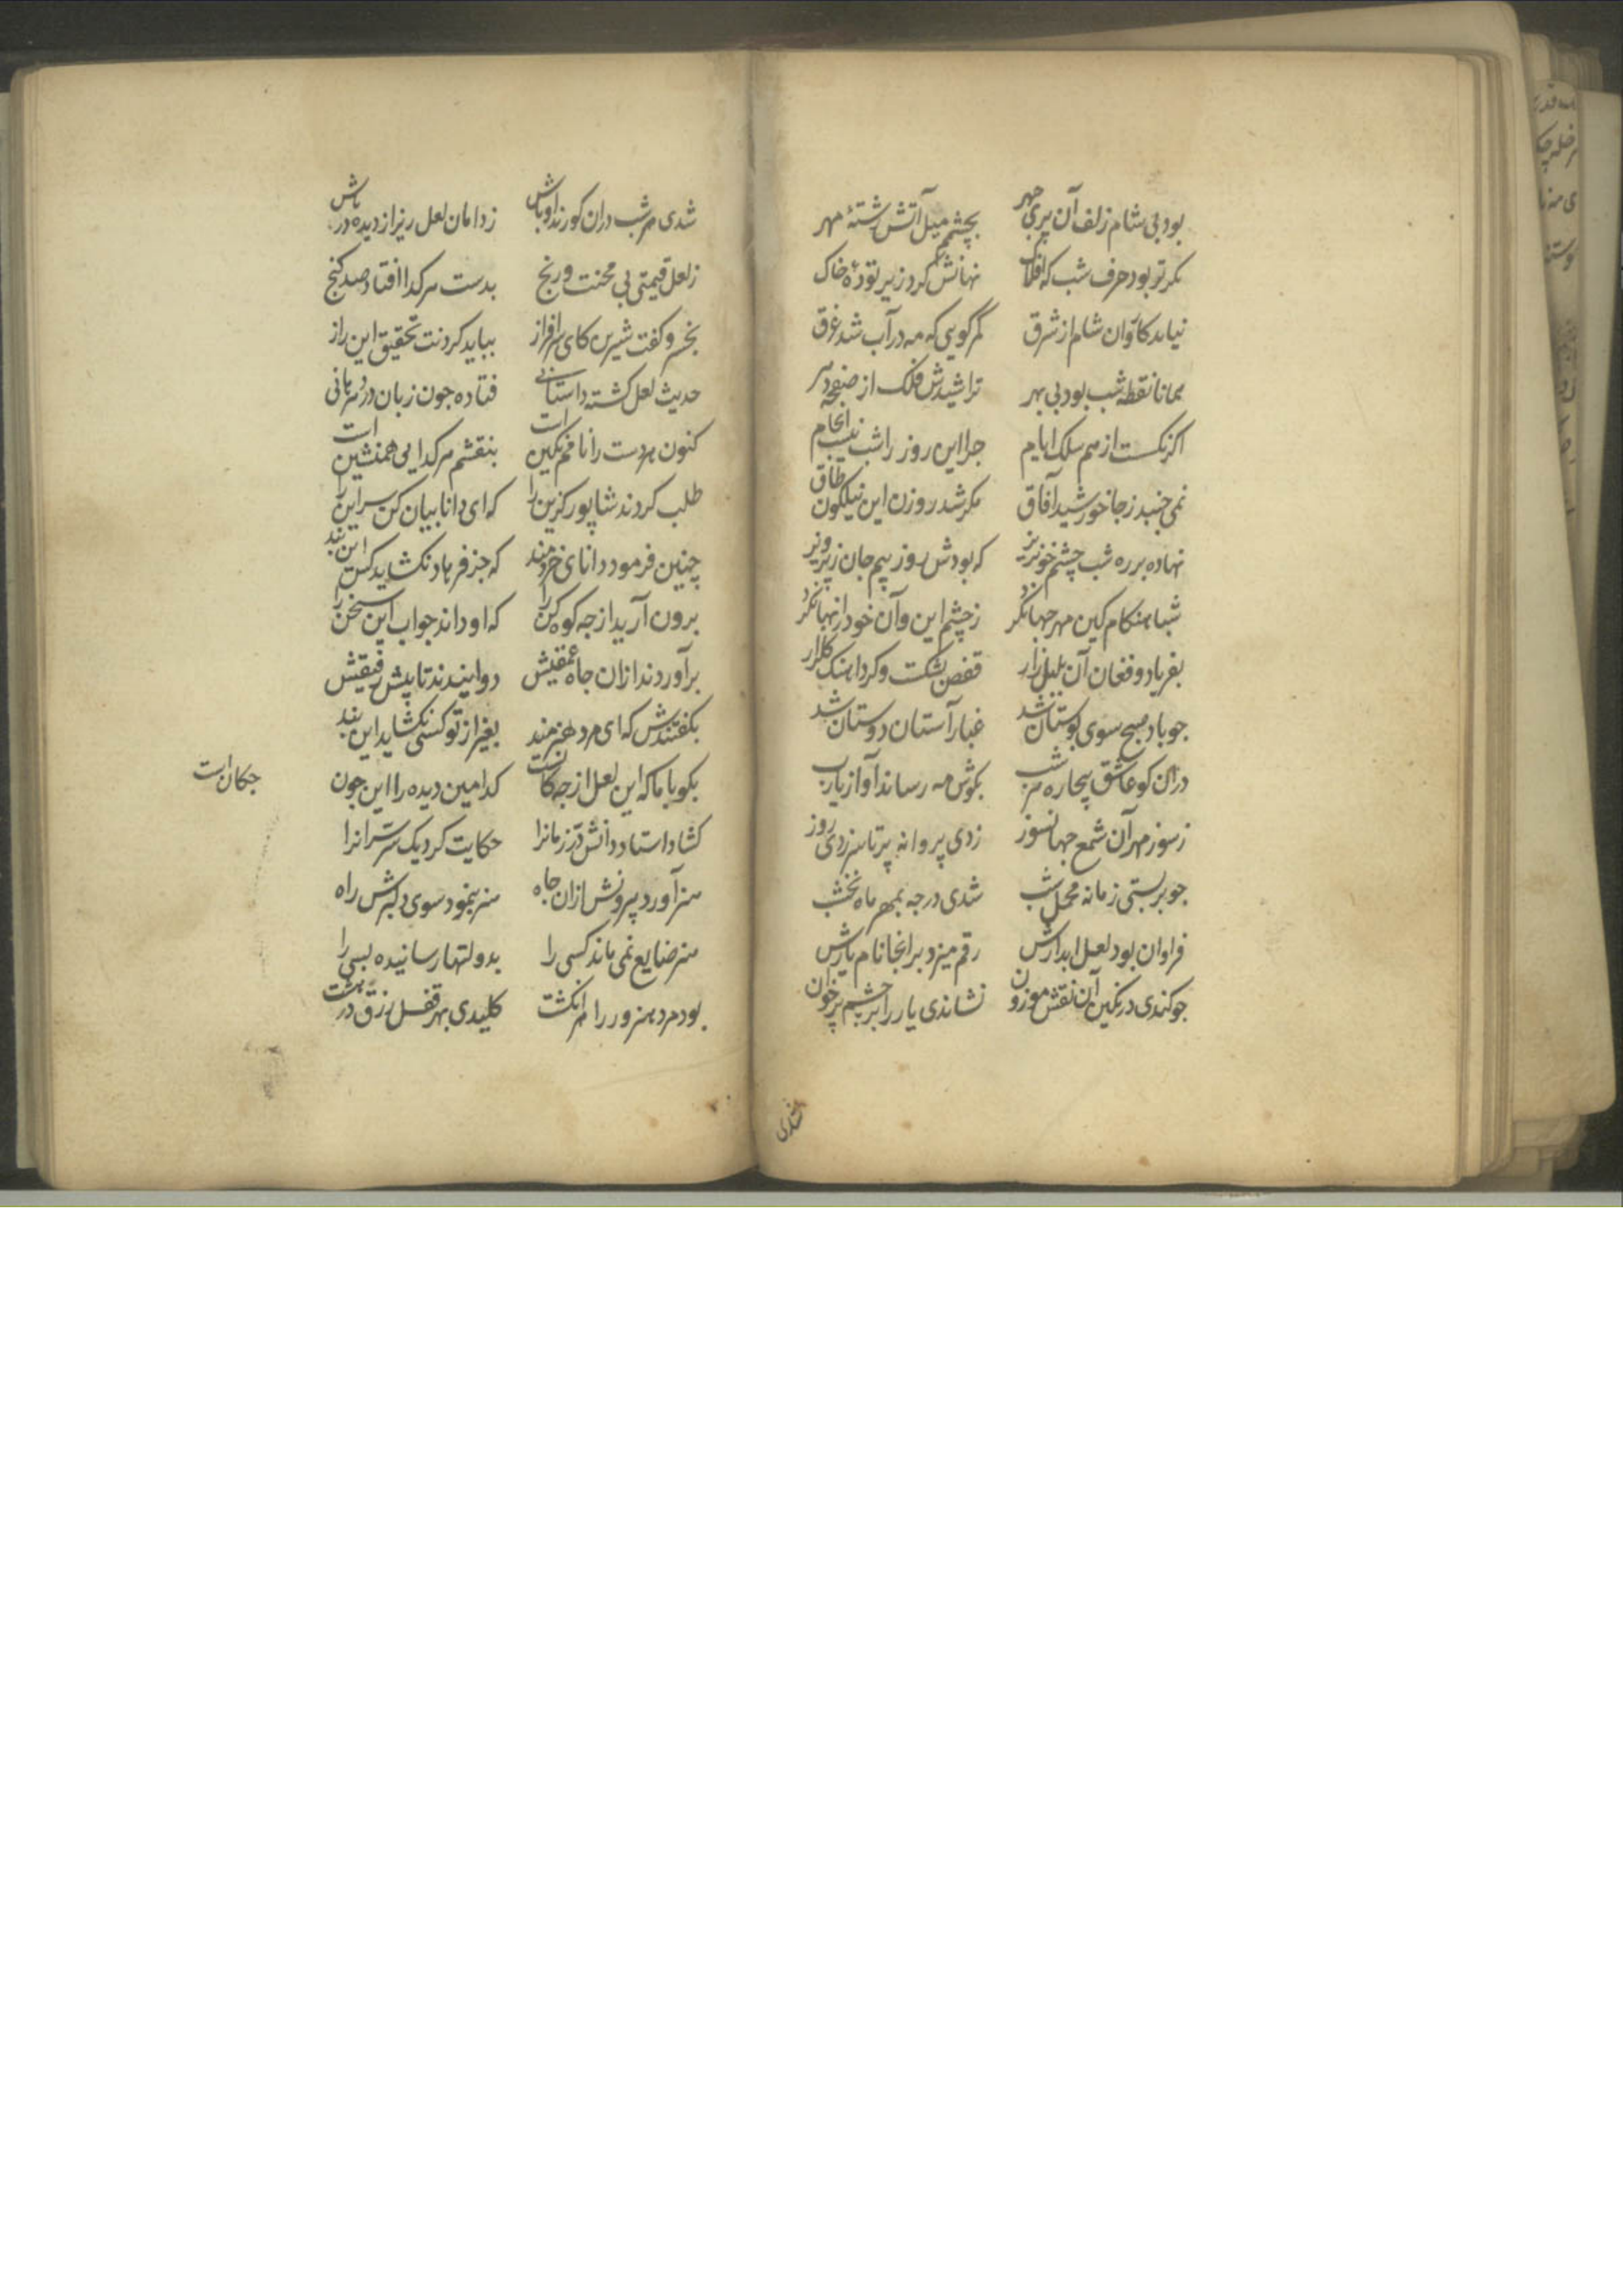 بود بی شام زلف آن پری چهر بچشمم میل آتش رشتهٔ مهر
مکر تر بود حرف شب که افلاک نهانش کرد زیر تودهٔ خاک
نیاید کاوان شام از شرق مکر کویی که مه در آب شد غرق
همانا نقطه شب بود بی بهر تراشیدش فلک از صفحه دهر
اکر نکست از هم سلک ایام جرا این روز را شب نیست انجام
نمی جنبد ز جا خورشید آفاق مکر شد روزن این نیلکون طاق
نهاده بر ره شب چشم خونریز که بودش روز بیم جان ز پرویز
شباهنکام کین مهر جهانکرد ز چشم این و آن خود را نهان کرد
بفریاد و فغان آن بلبل زار قفص بشکست و کرد اهنک کلزار
جو باد صبح سوی بوستان شد غبار آستان دوستان شد
دران کو عاشق بیچاره هر شب بکوش مه رساند آواز یارب
ز سوز مهر آن شمع جهانسوز زدی پروانه پر تا سر زدی روز
جو بر بستی زمانه محمل شب شدی در چه بمهر ماه نخشب
فراوان بود لعل ابدارش رقم میزد بر انجا نام یارش
جو کندی در نکین آن نقش موزون نشاندی یار را بر چشم پر خون
شدی
شدی هر شب دران کو رند اوباش ز دامان لعل ریز از دیده در پاش
ز لعل قیمتی بی محنت و رنج بدست هر کدا افتاد صد کنج
بخسرو کفت شیرین کای سرافراز بباید کردنت تحقیق این راز
حدیث لعل کشته داستانی فتاده جون زبان در هر دهانی
کنون هر دست را نامم نکین است بنقشم هر کدایی همنشین است
طلب کردند شاپور کزین را که ای دانا بیان کن سر این را
چنین فرمود دانای خردمند که جز فرهاد نکشاید کس این بند
برون آرید از جه کوه کن را که او داند جواب این سخن را
برآوردند ازان جاه عمیقش دوانیدند تا پیش رفیقش
بکفتندش که ای مرد هنرمند بغیر از تو کسی نکشاید این بند
بکو با ما که این لعل از جه کانست کدامین دیده را این جون
جکان است
کشاد استاد دانش در زمانرا حکایت کرد یک سر سر آنرا
هنر آورد بیرونش ازان جاه هنر بنمود سوی دلبرش راه
هنر ضایع نمی ماند کسی را بدولتها رسانیده بسی را
بود مرد هنرور را هر انکشت کلیدی بهر قفل رزق در مشت